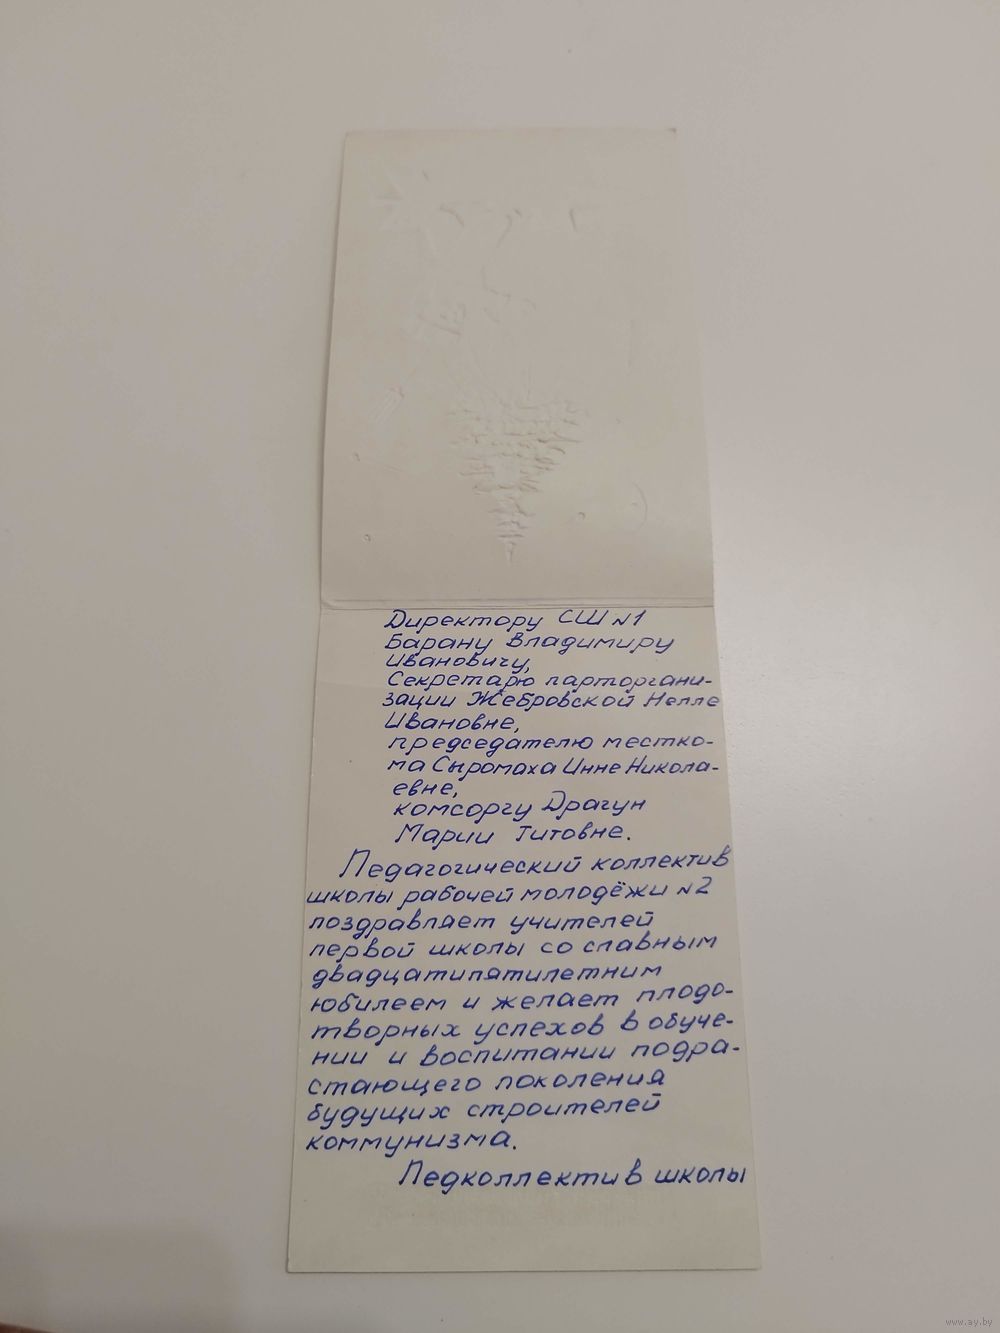 Директору СШ №1
Барану Владимиру
Ивановичу,
Секретарю парторгани-
зации Жебровской Нелле
Ивановне,
председателю местко-
ма Сыромаха Инне Никола-
евне,
комсоргу Драгун
Марии Титовне.
Педагогический коллектив
школы рабочей молодёжи №2
поздравляет учителей
первой школы со славным
двадцатипятилетним
юбилеем и желает плодо-
творных успехов в обуче-
нии и воспитании подра-
стающего поколения
будущих строителей
коммунизма.
Педколлектив школы
www.ay.by